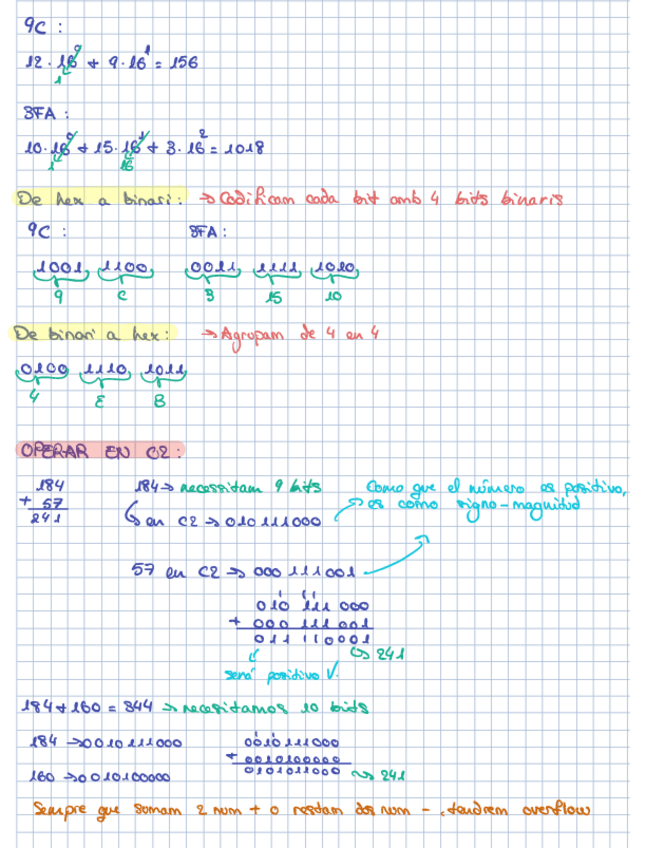 9C :
12 · 16⁰ + 9 · 16¹ = 156
1
3FA :
10 · 16⁰ + 15 · 16¹ + 3 · 16² = 1018
1 16
De hex a binari: → Codificam cada bit amb 4 bits binaris
9C : 3FA :
1001 1100 0011 1111 1010
9 C 3 15 10
De binari a hex: → Agrupam de 4 en 4
0100 1110 1011
4 E B
OPERAR EN C2 :
184
+ 57
241
184 → necessitam 9 bits
en C2 → 010111000
Como que el número es positivo,
es como signo-magnitud
57 en C2 → 000 111 001
1 1 1
010 111 000
+ 000 111 001
011 110001
→ 241
será positivo V.
184 + 160 = 344 → necesitamos 10 bits
184 → 0010111000
160 → 0010100000
0010111000
+ 0010100000
0101011000 → 241
Sempre que sumam 2 num + o restam dos num - , tendrem overflow